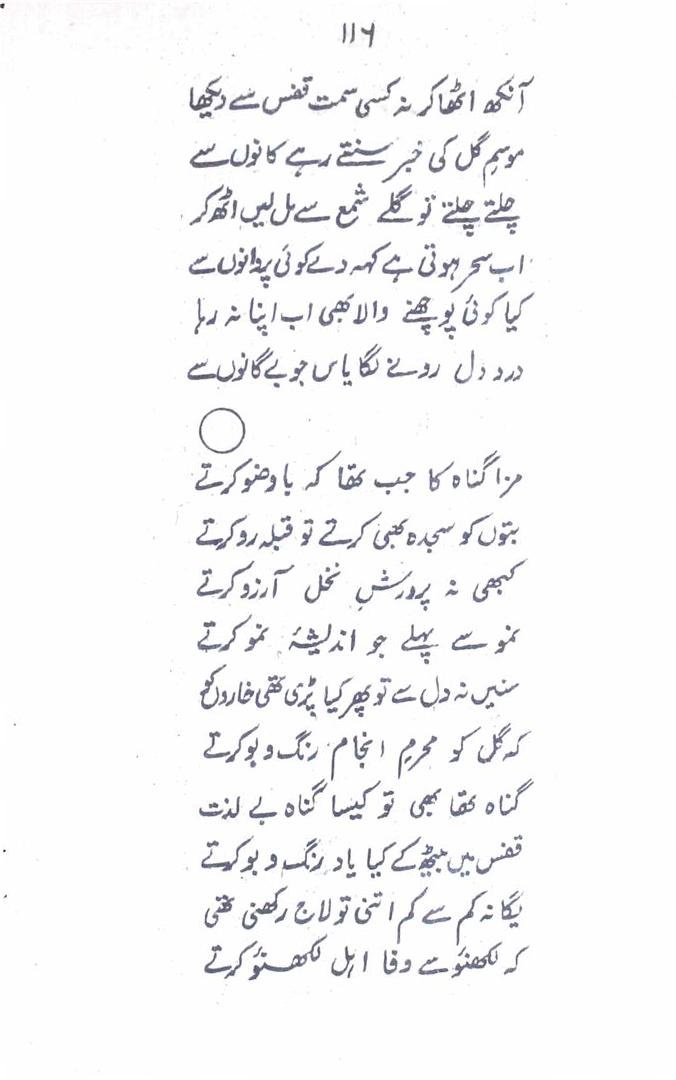 ۱۱۶
آنکھ اٹھا کر نہ کسی سمت قفس سے دیکھا
موسمِ گل کی خبر سنتے رہے کانوں سے
چلتے چلتے تو گلے شمع سے مل لیں اٹھ کر
اب سحر ہوتی ہے کہہ دے کوئی پروانوں سے
کیا کوئی پوچھنے والا بھی اب اپنا نہ رہا
درد دل رونے لگا یاس جو بے گانوں سے
مزا گناہ کا جب تھا کہ با وضو کرتے
بتوں کو سجدہ بھی کرتے تو قبلہ رو کرتے
کبھی نہ پرورشِ نخل آرزو کرتے
نمو سے پہلے جو اندیشۂ نمو کرتے
سنیں نہ دل سے تو پھر کیا پڑی تھی خاروں کو
کہ گل کو محرمِ انجام رنگ و بو کرتے
گناہ تھا بھی تو کیسا گناہ بے لذت
قفس میں بیٹھ کے کیا یاد رنگ و بو کرتے
یگانہ کم سے کم اتنی تو لاج رکھنی تھی
کہ لکھنؤ سے وفا اہل لکھنؤ کرتے